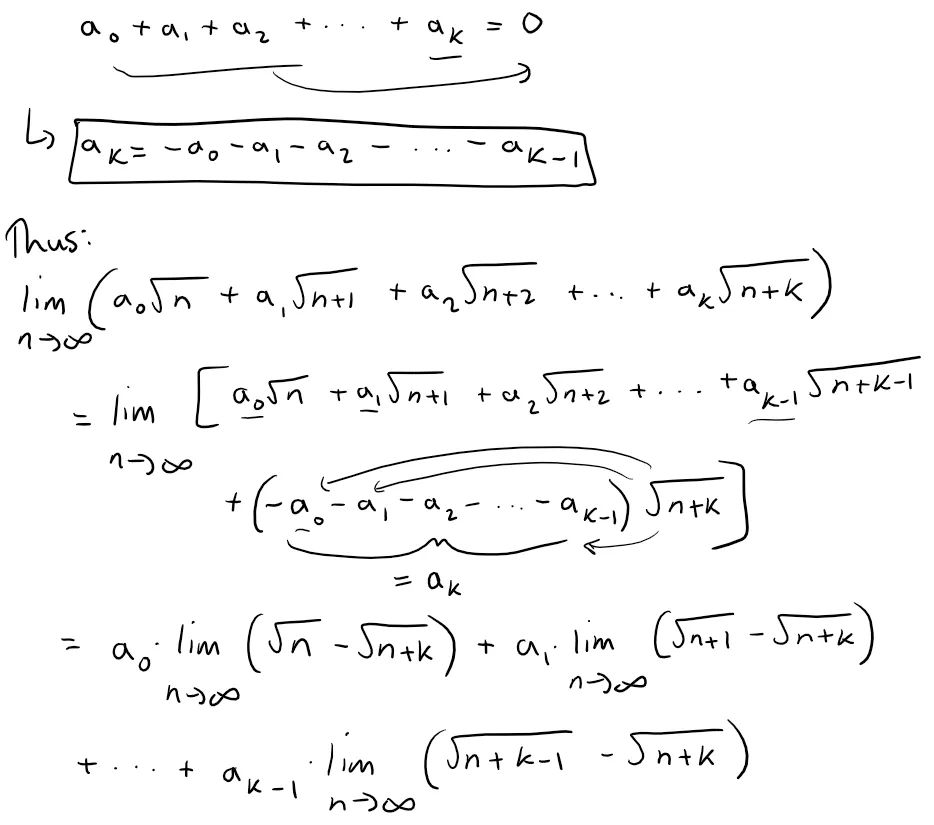 a₀ + a₁ + a₂ + ... + aₖ = 0
↳ aₖ = -a₀ - a₁ - a₂ - ... - aₖ₋₁
Thus:
lim n→∞ (a₀√n + a₁√(n+1) + a₂√(n+2) + ... + aₖ√(n+k))
= lim n→∞ [a₀√n + a₁√(n+1) + a₂√(n+2) + ... + aₖ₋₁√(n+k-1)
+ (-a₀ - a₁ - a₂ - ... - aₖ₋₁)√(n+k)]
= aₖ
= a₀· lim n→∞ (√n - √(n+k)) + a₁· lim n→∞ (√(n+1) - √(n+k))
+ ... + aₖ₋₁ · lim n→∞ (√(n+k-1) - √(n+k))